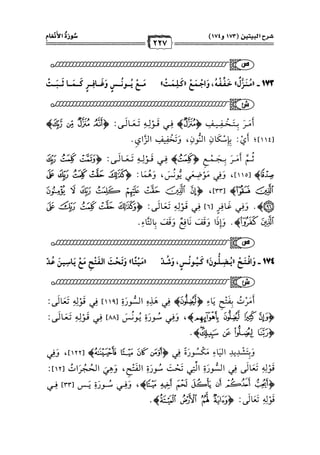 شرح البيتين (١٧٣ و١٧٤)
٢٢٧
سُورَةُ الأَنْعَام
١٧٣ - «مُنَزَّلٌ» خَفِّفْهُ، وَاجْمَعْ «كَلِمَتْ» مَعْ يُونُسٍ وَغَافِرٍ كَمَا ثَبَتْ
أَمَرَ بِتَخْفِيفِ ﴿مُنَزَّلٌ﴾ فِي قَوْلِهِ تَعَالَى: ﴿أَنَّهُ مُنَزَّلٌ مِّن رَّبِّكَ﴾
[١١٤]؛ أَيْ: بِإِسْكَانِ النُّونِ، وَتَخْفِيفِ الزَّايِ.
ثُمَّ أَمَرَ بِجَمْعِ ﴿كَلِمَتُ﴾ فِي قَوْلِهِ تَعَالَى: ﴿وَتَمَّتْ كَلِمَتُ رَبِّكَ
صِدْقًا﴾ [١١٥]، وَفِي مَوْضِعَيْ يُونُسَ، وَهُمَا: ﴿كَذَلِكَ حَقَّتْ كَلِمَتُ رَبِّكَ عَلَى
الَّذِينَ فَسَقُوا﴾ [٣٣]، ﴿إِنَّ الَّذِينَ حَقَّتْ عَلَيْهِمْ كَلِمَتُ رَبِّكَ لَا يُؤْمِنُونَ
﴾. وَفِي غَافِرٍ [٦] فِي قَوْلِهِ تَعَالَى: ﴿وَكَذَلِكَ حَقَّتْ كَلِمَتُ رَبِّكَ عَلَى
الَّذِينَ كَفَرُوا﴾. وَإِذَا وَقَفَ نَافِعٌ وَقَفَ بِالتَّاءِ.
١٧٤ - وَافْتَحْ «لَيَضِلُّونَ» كَيُونُسٍ، وَشُدّ «مَيْتًا» وَتَحْتَ الْفَتْحِ مَعْ يَاسِينَ عُدّ
أَمَرْتُ بِفَتْحِ يَاءِ ﴿لَيَضِلُّونَ﴾ فِي هَذِهِ السُّورَةِ [١١٩] فِي قَوْلِهِ تَعَالَى:
﴿وَإِنَّ كَثِيرًا لَّيَضِلُّونَ بِأَهْوَائِهِم﴾، وَفِي سُورَةِ يُونُسَ [٨٨] فِي قَوْلِهِ تَعَالَى:
﴿رَبَّنَا لِيَضِلُّوا عَن سَبِيلِكَ﴾.
وَبِتَشْدِيدِ اليَاءِ مَكْسُورَةً فِي ﴿أَوَمَن كَانَ مَيِّتًا فَأَحْيَيْنَاهُ﴾ [١٢٢]، وَفِي
قَوْلِهِ تَعَالَى فِي السُّورَةِ الَّتِي تَحْتَ سُورَةِ الفَتْحِ، وَهِيَ الحُجُرَاتُ [١٢]:
﴿أَيُحِبُّ أَحَدُكُمْ أَن يَأْكُلَ لَحْمَ أَخِيهِ مَيِّتًا﴾، وَفِي سُورَةِ يس [٣٣] فِي
قَوْلِهِ تَعَالَى: ﴿وَءَايَةٌ لَّهُمُ الْأَرْضُ الْمَيِّتَةُ﴾.